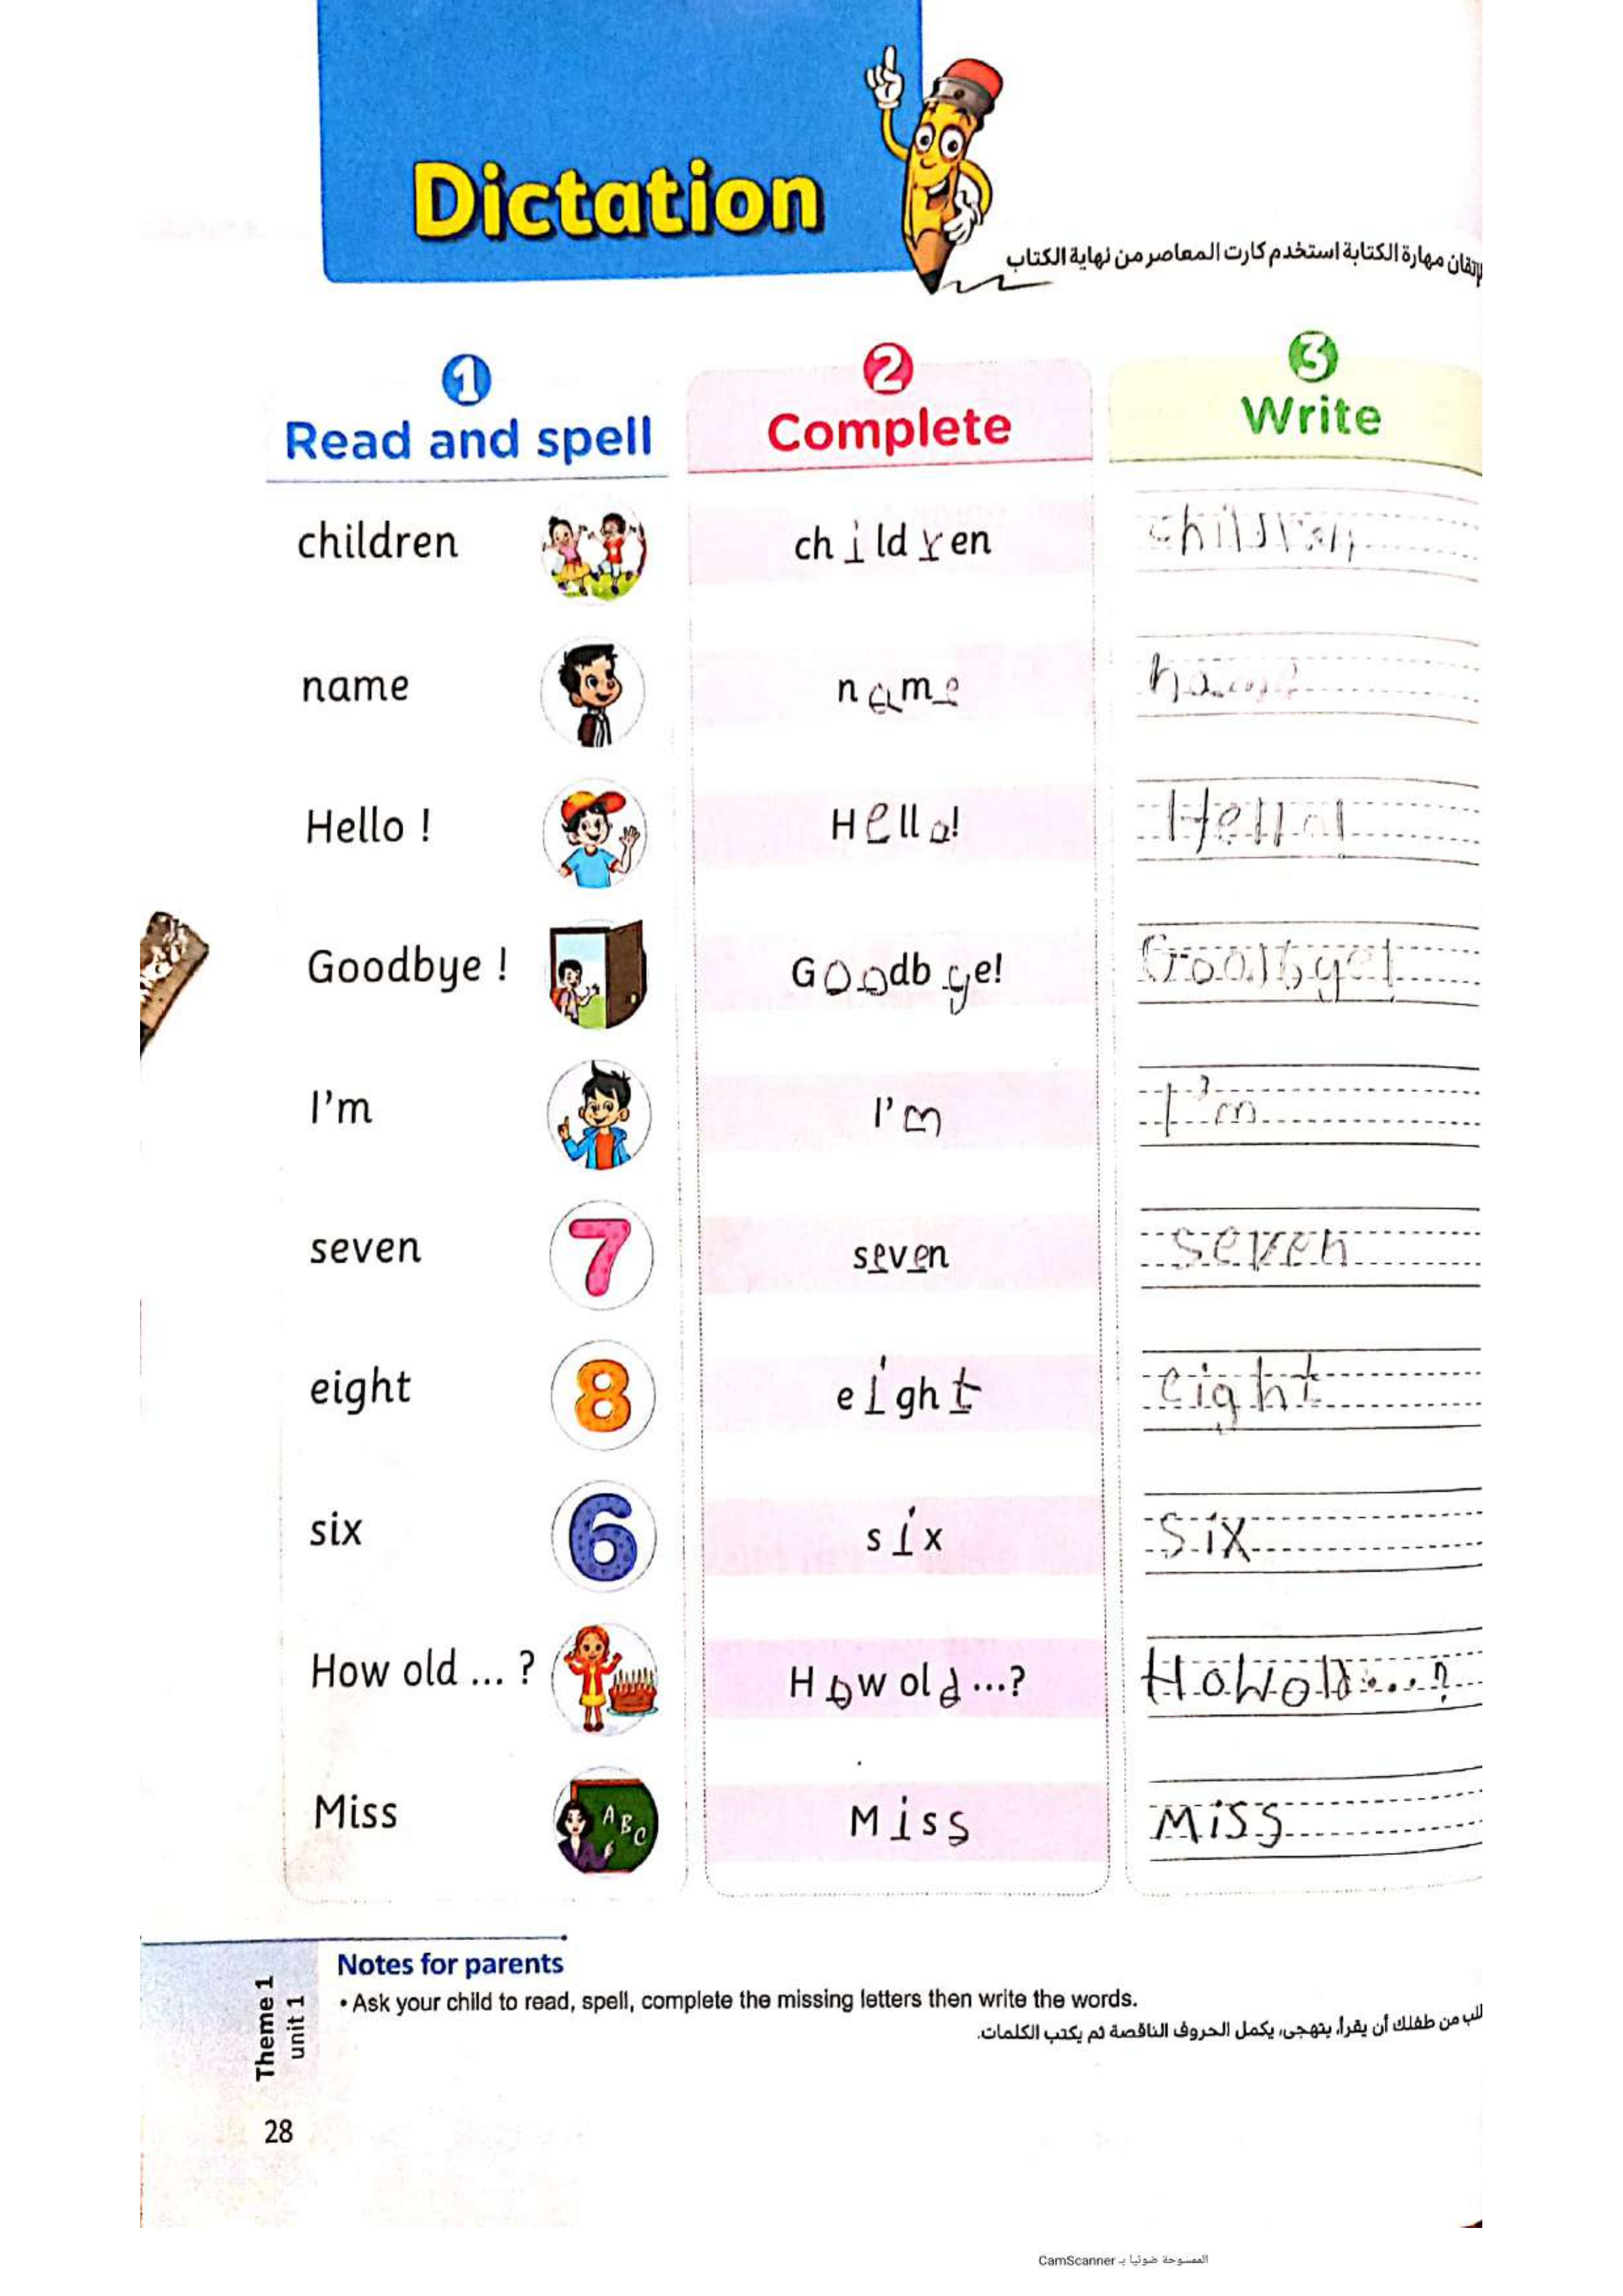 Dictation
لإتقان مهارة الكتابة استخدم كارت المعاصر من نهاية الكتاب
1 2 3
Read and spell Complete Write
children children children
name name name
Hello ! Hello! Hello!
Goodbye ! Goodbye! Goodbye!
I'm I'm I'm
7
seven seven seven
8
eight eight eight
6
six six six
How old ... ? How old ...? How old ...?
Miss A B C Miss Miss
Notes for parents
• Ask your child to read, spell, complete the missing letters then write the words.
من طفلك أن يقرأ، يتهجى، يكمل الحروف الناقصة ثم يكتب الكلمات.
Theme 1
unit 1
28
الممسوحة ضوئيا بـ CamScanner